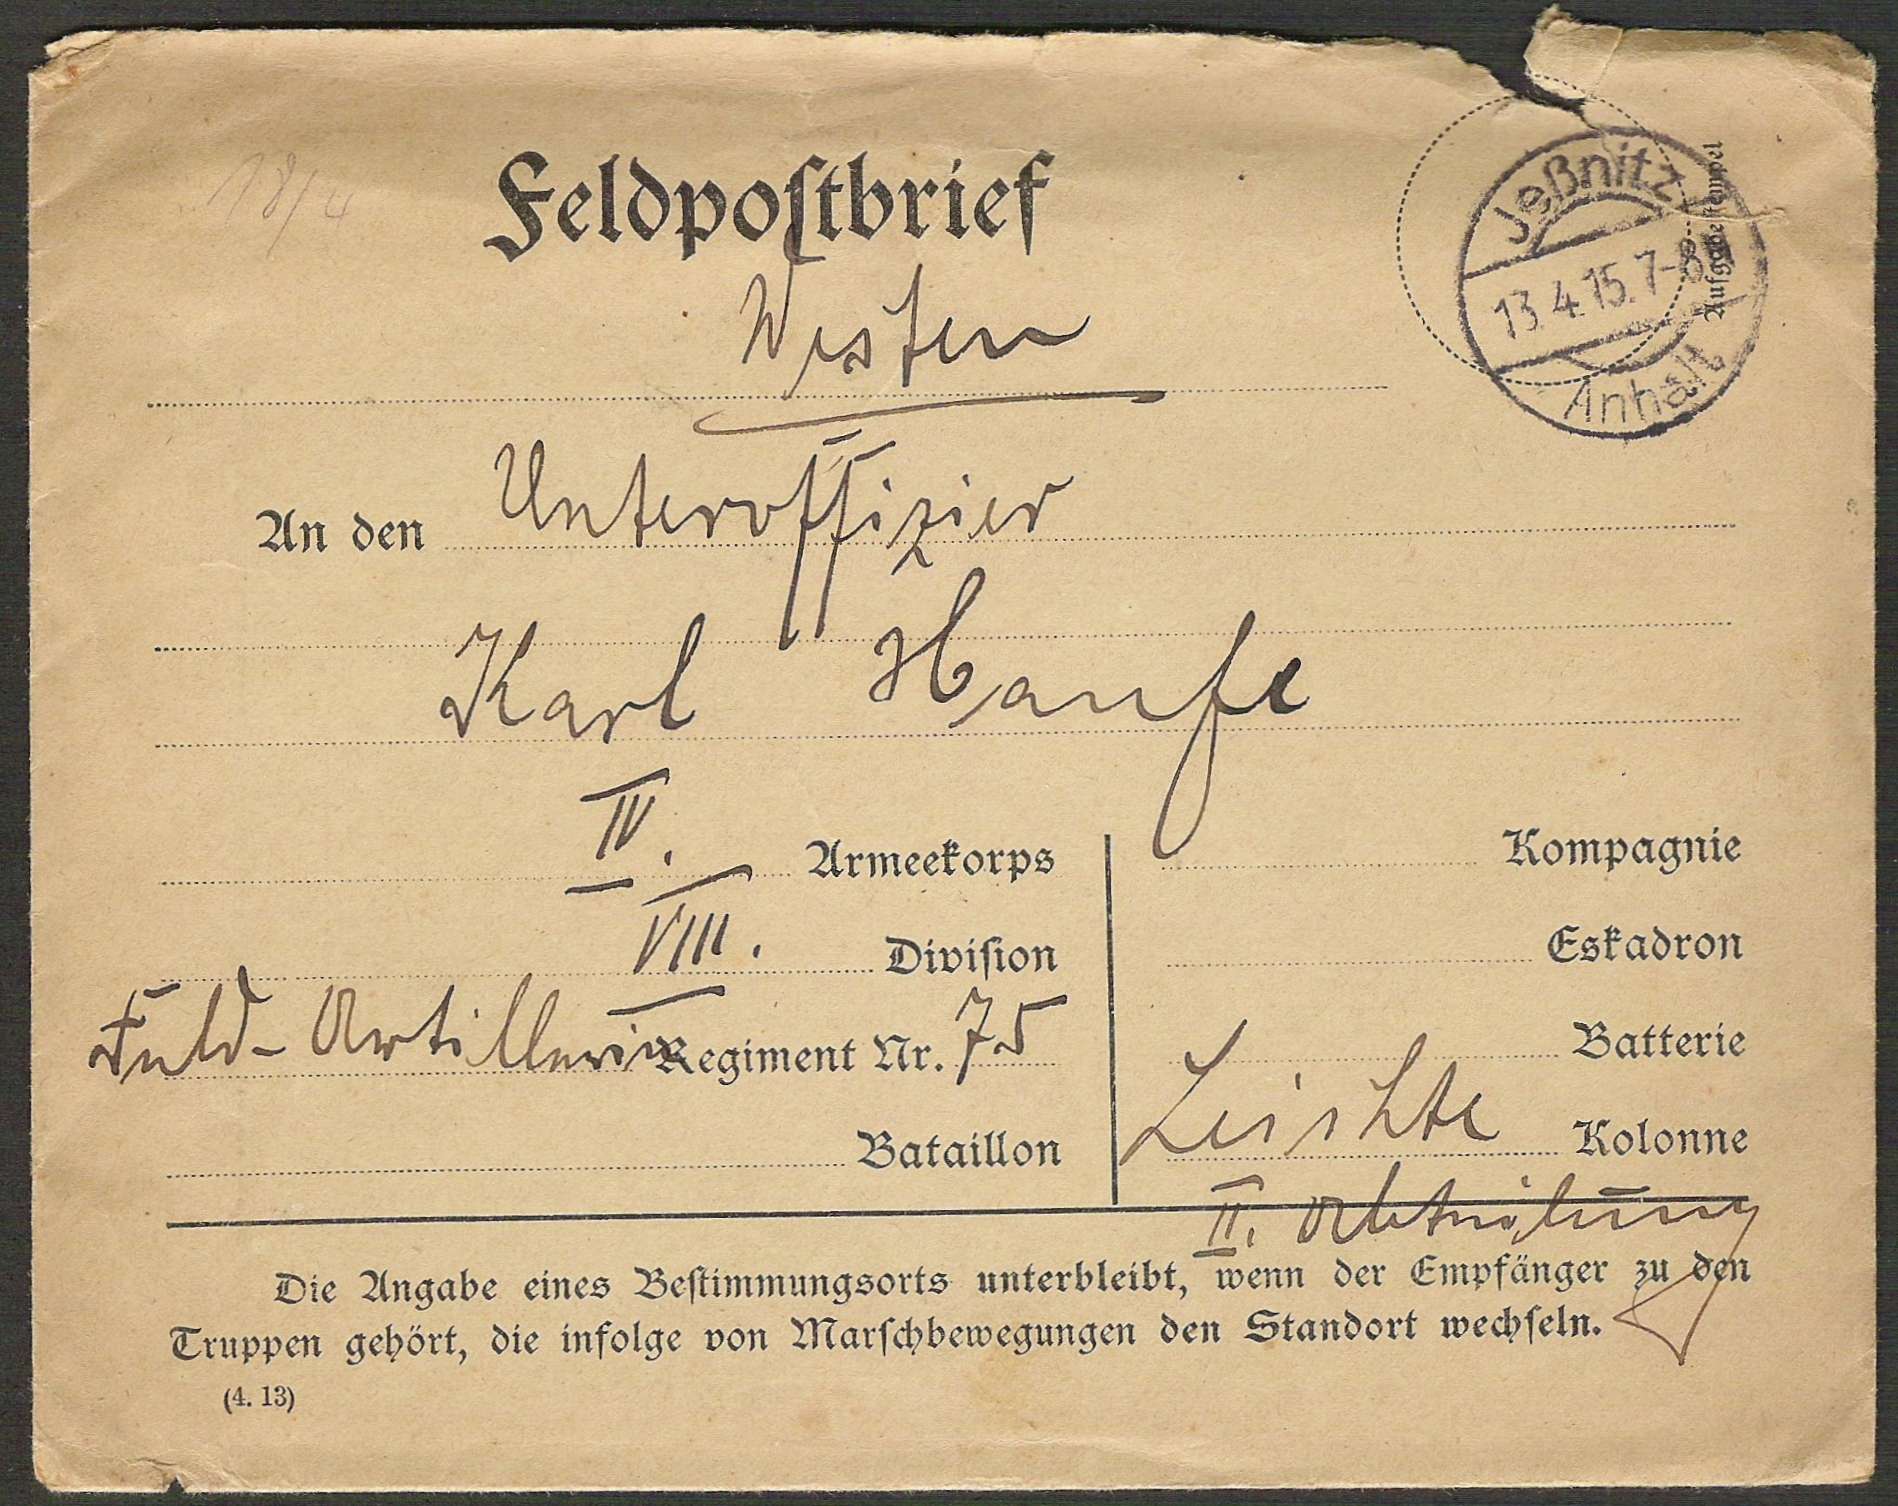 18/4
Feldpostbrief
Jeßnitz
13.4.15.7-8
Anhalt
Aufgabestempel
Westen
An den Unteroffizier
Karl Hanfe
IV. Armeekorps
VIII. Division
Feld-Artillerie Regiment Nr. 75
Bataillon
Kompagnie
Eskadron
Batterie
Leichte Kolonne
II. Abteilung
Die Angabe eines Bestimmungsorts unterbleibt, wenn der Empfänger zu den
Truppen gehört, die infolge von Marschbewegungen den Standort wechseln.
(4. 13)